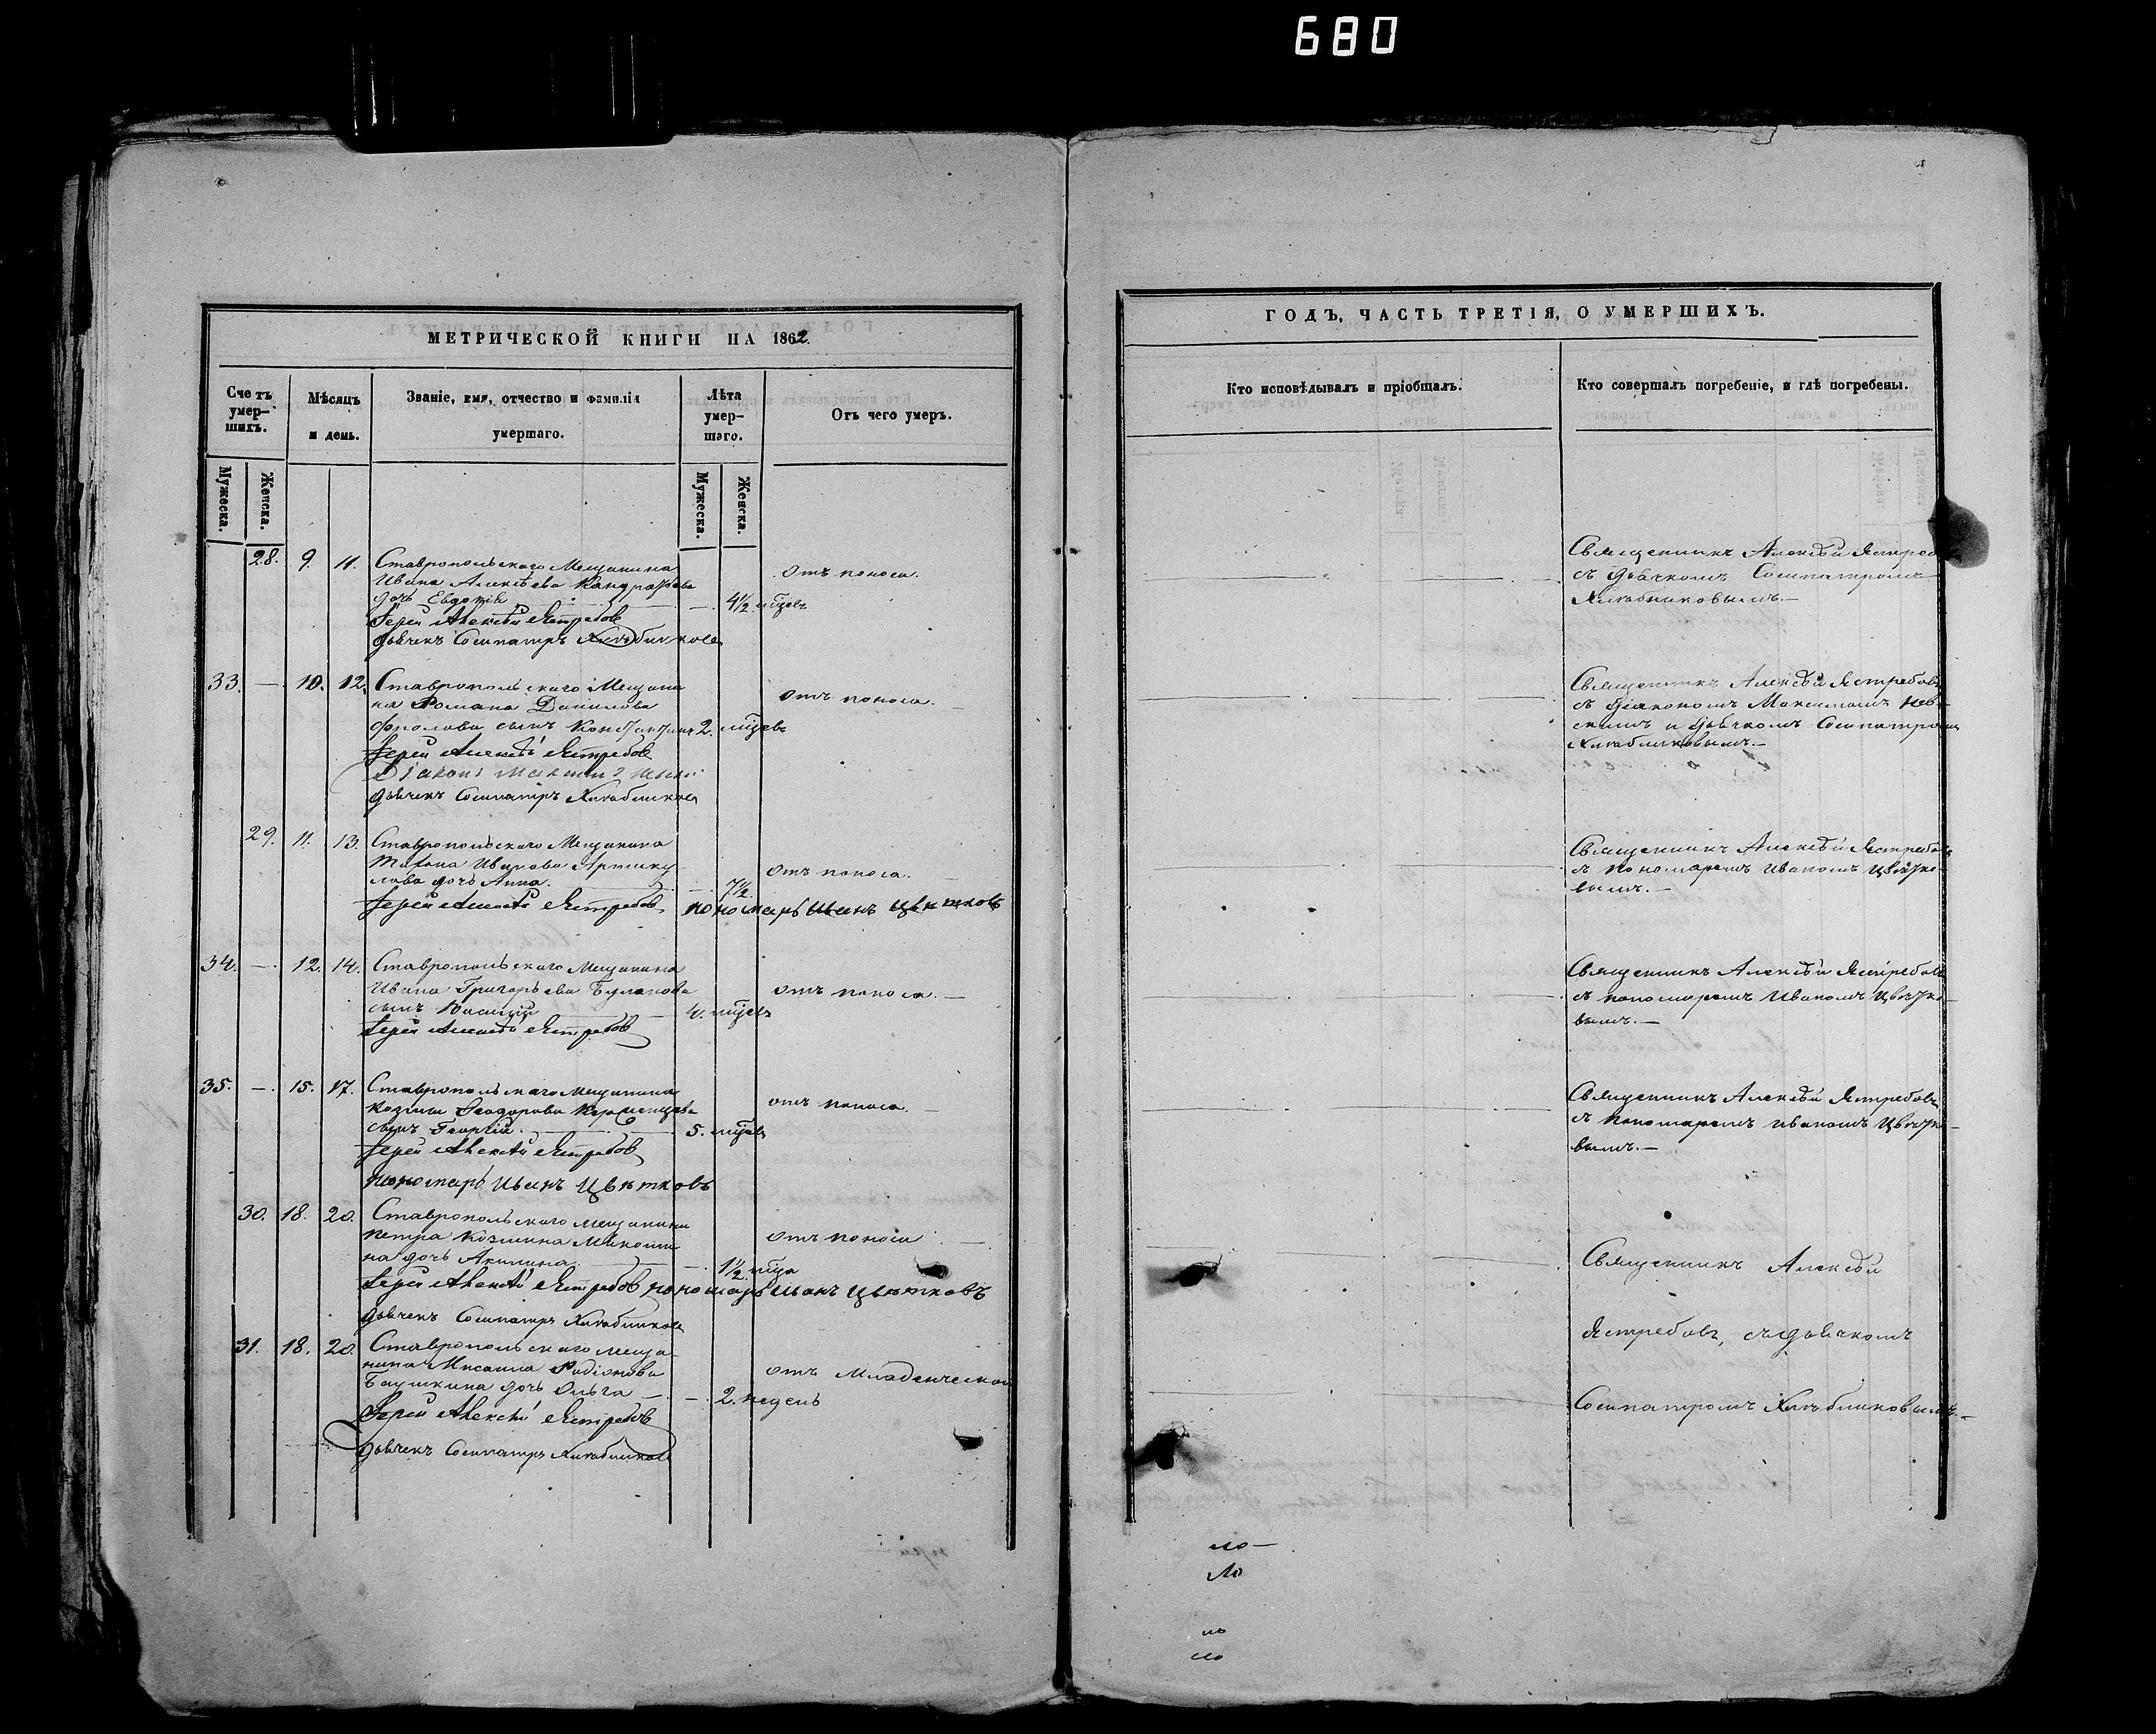 680
МЕТРИЧЕСКОЙ КНИГИ НА 1862.
Счетъ умер-
шихъ.
Мѣсяцъ
и день.
Званіе, имя, отчество и фамилія
умершаго.
Лѣта
умер-
шаго.
Отъ чего умеръ.
Мужеска.
Женска.
Мужеска.
Женска.
28. 9. 11. Ставропольскаго Мещанина
Ивана Алексѣева
дочь Евдокія — 4½ мѣсяцъ отъ поноса.
Іерей Алексѣй Ястребовъ
дьячекъ Сосипатръ Хлѣбниковъ
33. — 10. 12. Ставропольскаго Мещани
на Романа Данилова
Фролова сынъ Константинъ 2. мѣсяцъ отъ поноса.
Іерей Алексѣй Ястребовъ
Діаконъ Максимъ
дьячекъ Сосипатръ Хлѣбниковъ
29. 11. 13. Ставропольскаго Мещанина
Ивана
дочь Анна. — 7½. отъ поноса.
Іерей Алексѣй Ястребовъ пономарь Иванъ Цвѣтковъ
34. — 12. 14. Ставропольскаго Мещанина
Ивана Григорьева Буланова
сынъ Василій 4. мѣсяцъ отъ поноса. —
Іерей Алексѣй Ястребовъ
35. — 15. 17. Ставропольскаго Мещанина
Козмы Ѳеодорова
сынъ Георгій. 5. мѣсяцъ отъ поноса. —
Іерей Алексѣй Ястребовъ
пономарь Иванъ Цвѣтковъ
30. 18. 20. Ставропольскаго Мещанина
Петра Козмина Микоши
на дочь Акилина — 1½ мѣсяца отъ поноса
Іерей Алексѣй Ястребовъ пономарь Иванъ Цвѣтковъ
дьячекъ Сосипатръ Хлѣбниковъ
31. 18. 20. Ставропольскаго Меща-
нина Мисаила Родіонова
Баушкина дочь Ольга — 2. недель отъ Младенческой
Іерей Алексѣй Ястребовъ
дьячекъ Сосипатръ Хлѣбниковъ
ГОДЪ, ЧАСТЬ ТРЕТІЯ, О УМЕРШИХЪ.
Кто исповѣдывалъ и пріобщалъ.
Кто совершалъ погребеніе, и гдѣ погребены.
Священникъ Алексѣй Ястребовъ
съ дьячкомъ Сосипатромъ
Хлѣбниковымъ. —
Священникъ Алексѣй Ястребовъ
съ діакономъ Максимомъ Нев-
скимъ и дьячкомъ Сосипатромъ
Хлѣбниковымъ. —
Священникъ Алексѣй Ястребовъ
съ пономаремъ Иваномъ Цвѣтко-
вымъ. —
Священникъ Алексѣй Ястребовъ
съ пономаремъ Иваномъ Цвѣтко-
вымъ. —
Священникъ Алексѣй Ястребовъ
съ пономаремъ Иваномъ Цвѣтко-
вымъ. —
Священникъ Алексѣй
Ястребовъ, съ дьячкомъ
Сосипатромъ Хлѣбниковымъ. —